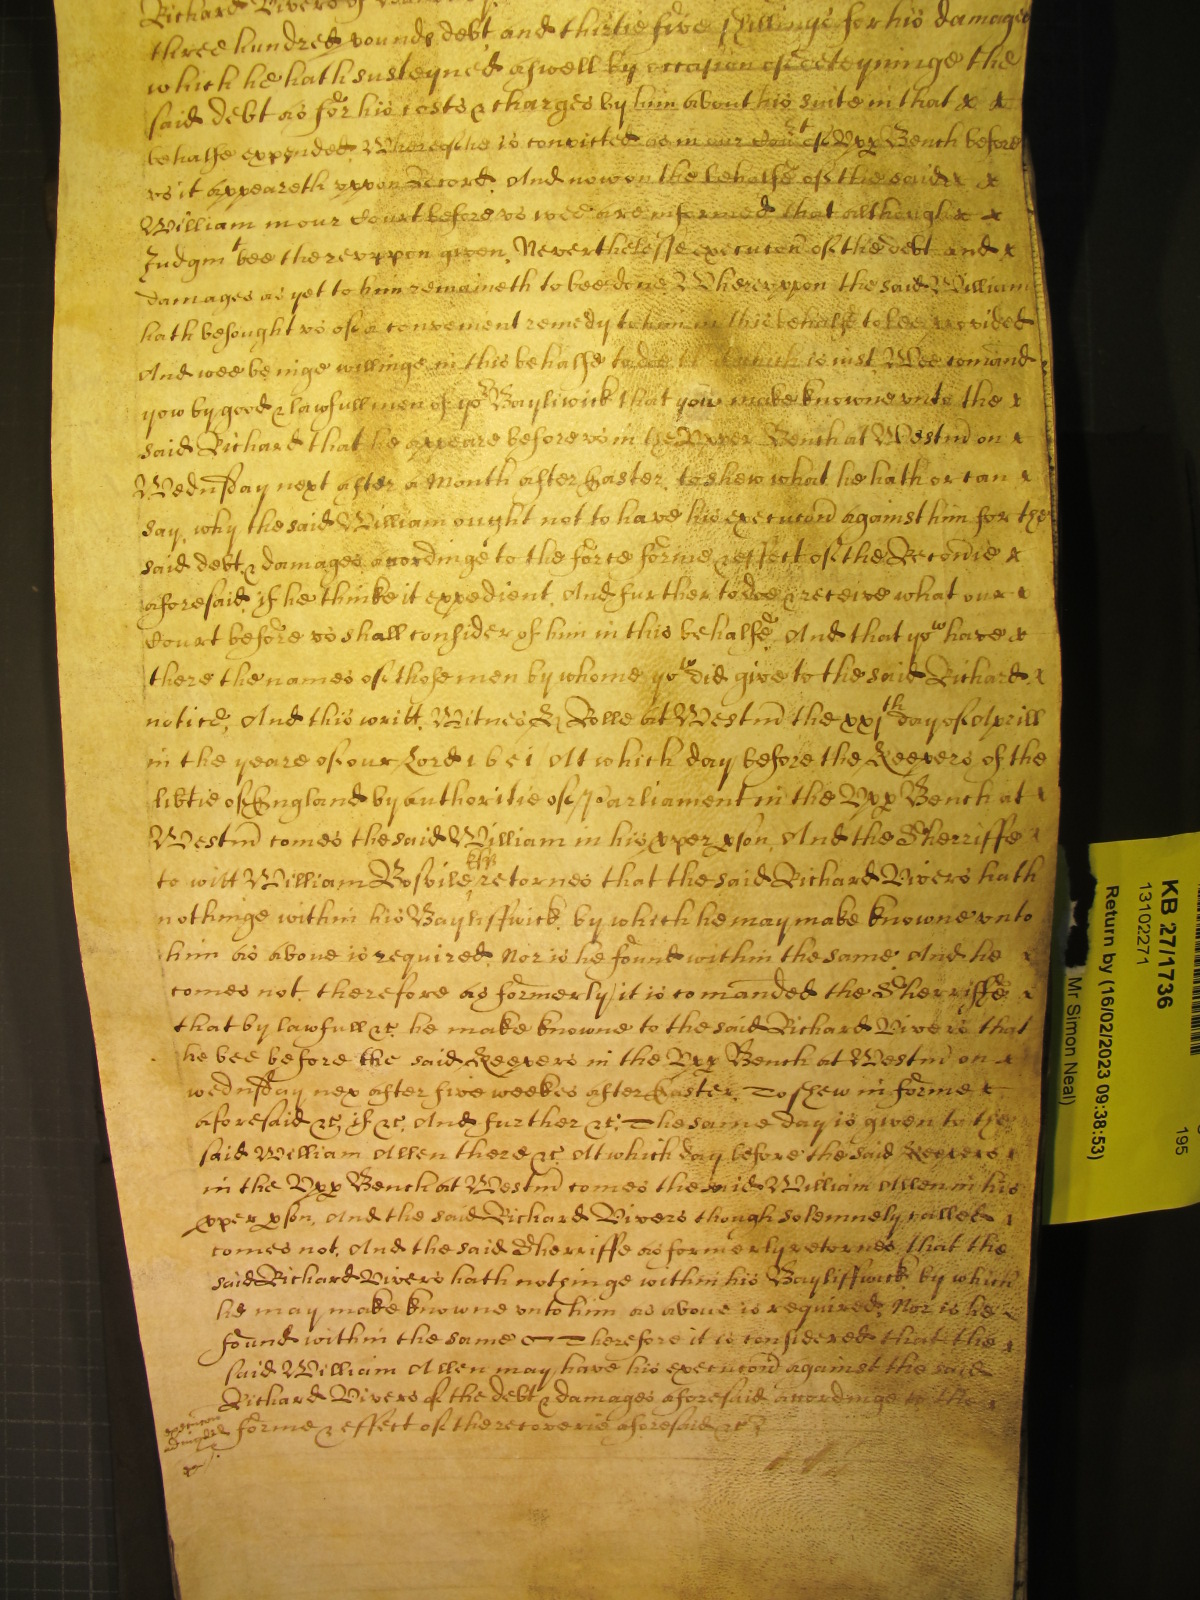 Richard Rivers of
three hundred pounds debt and thirtie five shillings for his damages
which he hath susteyned aswell by occasion of deteyninge the
said debt as for his costs & charges by him about his suite in that x x
behalfe expended. Whereof he is convicted as in our Cort of Upp Bench before
vs it appeareth vppon Record. And now on the behalfe of the said x x
William in our Court before vs wee are informed that although x x
Judgmt bee therevppon given, Neverthelesse execucon of the debt and x
damages as yet to him remaineth to bee done Wherevppon the said William
hath besought vs of a convenient remedy to him in this behalfe to bee provided
And wee beinge willinge in this behalfe to doe that which is iust Wee comand
yow by good & lawfull men of yor Bayliwick that yow make knowne vnto the x
said Richard that he appeare before vs in the Vpper Bench at Westm on x
Wednsday next after a Month after Easter, to shew what he hath or can x
say, why the said William ought not to have his execucon against him for the
said debt & damages accordinge to the force forme & effect of the Recovie x
aforesaid, if he thinke it expedient, And further to doe & receive what our x
Court before vs shall consider of him in this behalfe, And that yow have x
there the names of those men by whome yow did give to the said Richard x
notice, And this writt. Witnes H Rolle at Westm the xxjth day of Aprill
in the yeare of our Lord 1651 At which day before the Keepers of the
libtie of England by authoritie of Parliament in the Vpp Bench at x
Westm comes the said William in his pper pson, And the Sherriffe x
to witt William Bosvile Esqr retornes that the said Richard Rivers hath
nothinge within his Bayliffwick by which he may make knowne vnto
him as above is required. Nor is he found within the same. And he x
comes not, therefore as formerly it is comanded the Sherriffe x
that by lawfull &c. he make knowne to the said Richard Rivers that
he bee before the said Keepers in the Vpp Bench at Westm on x
wednsday nex after five weekes after Easter, To shew in forme x
aforesaid &c, if &c, And further &c, The same day is given to the
said William Allen there &c At which day before the said Keepers x
in the Vpp Bench at Westm comes the said William Allen in his
pper pson, And the said Richard Rivers though solemnely called x
comes not, And the said Sherriffe as formerly retornes that the
said Richard Rivers hath nothinge within his Bayliffwick by which
he may make knowne vnto him as above is required, Nor is he
found within the same Therefore it is considered that the x
said William Allen may have his execucon against the said
Richard Rivers of the debt & damages aforesaid accordinge to the x
execucon
forme & effect of the recoverie aforesaid &c
KB 27/1736
13102271
Return by (16/02/2023 09:38:53)
Mr Simon Neal)
195